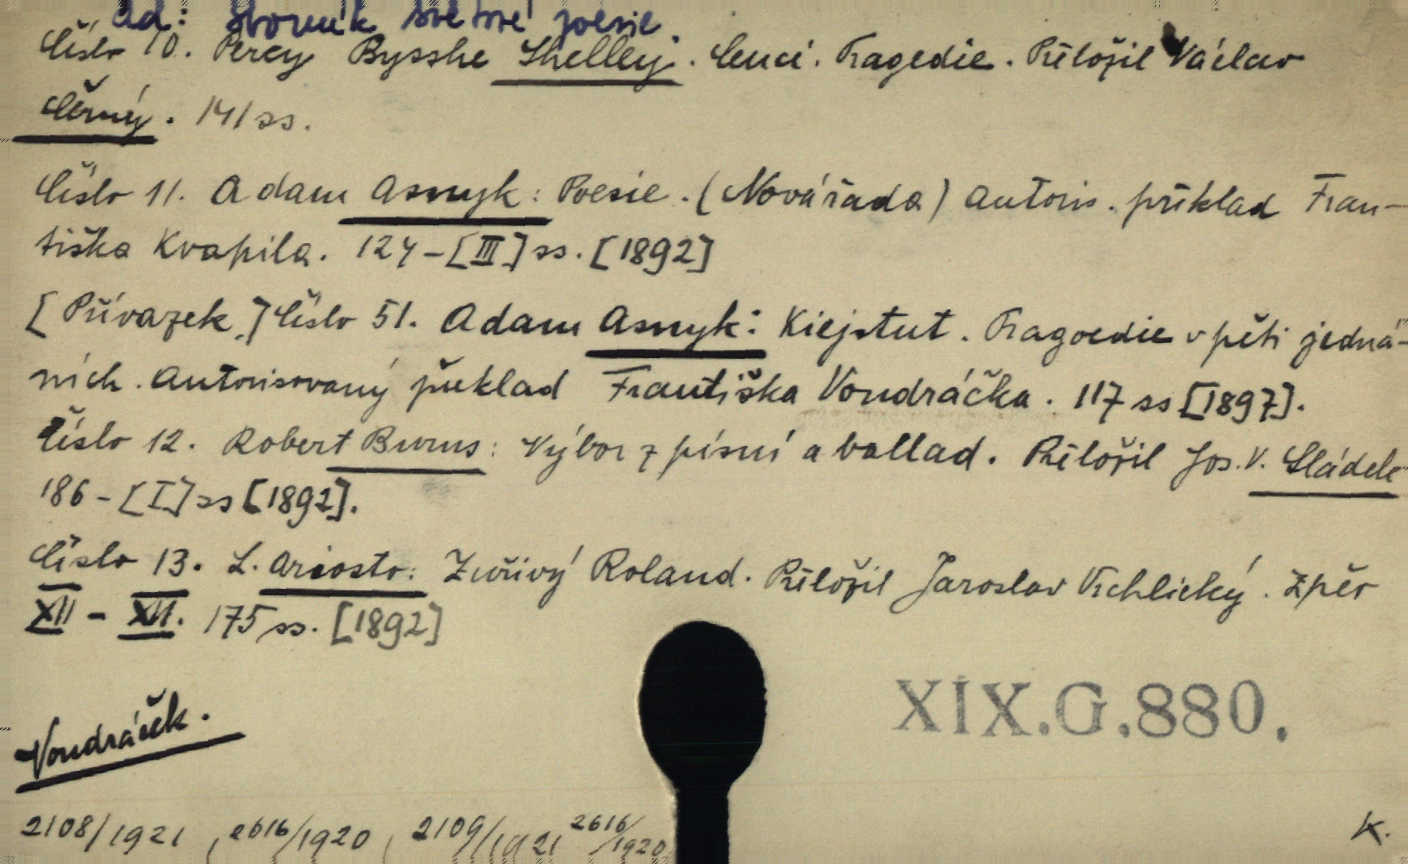 Ad: Sborník světové poesie.
Číslo 10. Percy Bysshe Shelley. Cenci. Tragedie. Přeložil Václav
Černý. 141 ss.
Číslo 11. Adam Asnyk: Poesie. (Nová řada) Autoris. překlad Fran-
tiška Kvapila. 124-[III] ss. [1892]
[Přívazek.] Číslo 51. Adam Asnyk: Kiejstut. Tragoedie v pěti jedná-
ních. Autorisovaný překlad Františka Vondráčka. 117 ss [1897].
Číslo 12. Robert Burns: Výbor z písní a ballad. Přeložil Jos. V. Sládek
186-[I] ss [1892].
Číslo 13. L. Ariosto: Zuřivý Roland. Přeložil Jaroslav Vrchlický. Zpěv
XII - XII. 175 ss. [1892]
XIX.G.880.
Vondráček.
2108/1921, 2616/1920, 2109/1921 2616/1920
K.